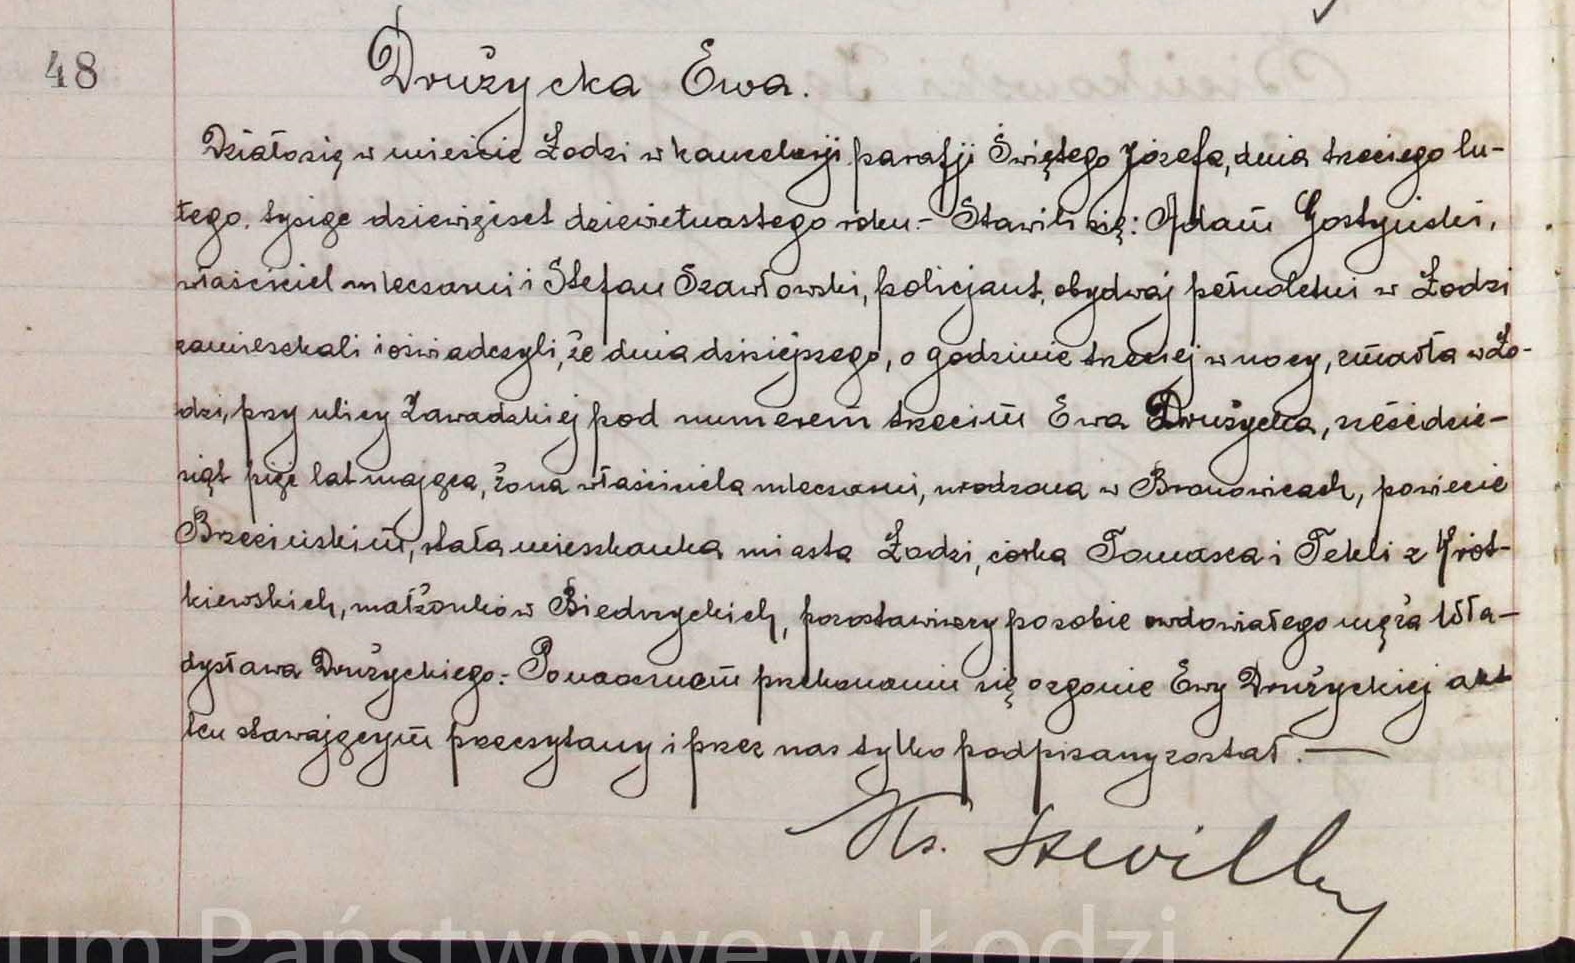 48
Drużycka Ewa.
Działo się w mieście Łodzi w kancelarji parafji Świętego Józefa, dnia trzeciego lu-
tego, tysiąc dziewięćset dziewietnastego roku.- Stawili się: Adam Gostyński,
właściciel mleczarni i Stefan Szawłowski, policjant, obydwaj pełnoletni w Łodzi
zamieszkali i oświadczyli, że dnia dzisiejszego, o godzinie trzeciej w nocy, zmarła w Ło-
dzi, przy ulicy Zawadzkiej pod numerem trzecim Ewa Drużycka, sześćdzie-
siąt pięć lat mająca, żona właściciela mleczarni, urodzona w Bronowicach, powiecie
Brzezińskim, stała mieszkanka miasta Łodzi, córka Tomasza i Tekli z Krót-
kiewskich, małżonków Biedrzyckich, pozostawiwszy po sobie owdowiałego męża Wła-
dysława Drużyckiego.- Po naocznem przekonaniu się o zgonie Ewy Drużyckiej akt
ten stawającym przeczytany i przez nas tylko podpisany został. —
Ks.
um Państwowe w Łodzi